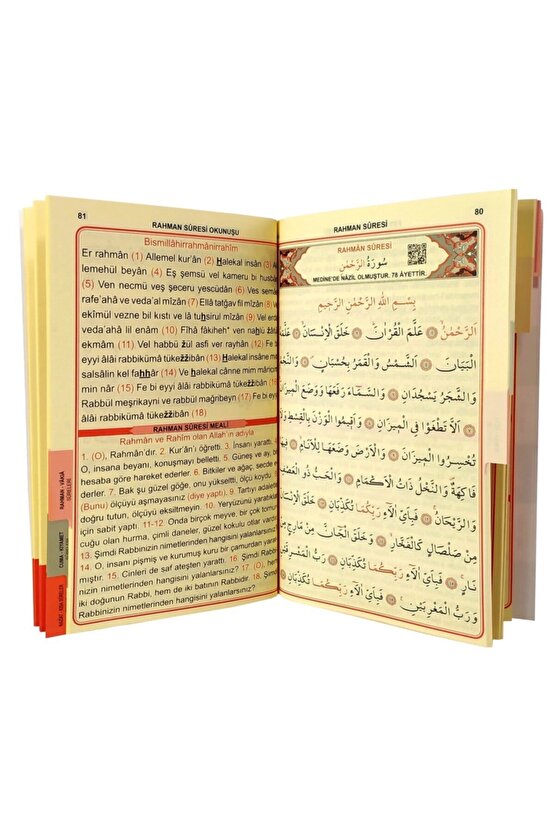 80
RAHMAN SÛRESİ
RAHMÂN SÛRESİ
سُورَةُ الرَّحْمٰنِ
MEDİNE'DE NÂZİL OLMUŞTUR. 78 ÂYETTİR.
بِسْمِ اللّٰهِ الرَّحْمٰنِ الرَّحِيمِ
اَلرَّحْمٰنُ ۙ عَلَّمَ الْقُرْاٰنَ ۜ خَلَقَ الْاِنْسَانَ ۙ عَلَّمَهُ
الْبَيَانَ اَلشَّمْسُ وَالْقَمَرُ بِحُسْبَانٍ ۖ وَالنَّجْمُ
وَالشَّجَرُ يَسْجُدَانِ وَالسَّمَاءَ رَفَعَهَا وَوَضَعَ الْمِيزَانَ
اَلَّا تَطْغَوْا فِي الْمِيزَانِ وَاَقِيمُوا الْوَزْنَ بِالْقِسْطِ وَلَا
تُخْسِرُوا الْمِيزَانَ وَالْاَرْضَ وَضَعَهَا لِلْاَنَامِ ۙ فِيهَا
فَاكِهَةٌ وَالنَّخْلُ ذَاتُ الْاَكْمَامِ وَالْحَبُّ ذُو الْعَصْفِ
وَالرَّيْحَانُ ۚ فَبِاَيِّ اٰلَاءِ رَبِّكُمَا تُكَذِّبَانِ خَلَقَ الْاِنْسَانَ
مِنْ صَلْصَالٍ كَالْفَخَّارِ ۙ وَخَلَقَ الْجَانَّ مِنْ مَارِجٍ مِنْ
نَارٍ ۚ فَبِاَيِّ اٰلَاءِ رَبِّكُمَا تُكَذِّبَانِ رَبُّ الْمَشْرِقَيْنِ
وَرَبُّ الْمَغْرِبَيْنِ ۚ فَبِاَيِّ اٰلَاءِ رَبِّكُمَا تُكَذِّبَانِ
81
RAHMAN SÛRESİ OKUNUŞU
Bismillâhirrahmânirrahîm
Er rahmân (1) Allemel kur'ân (2) Halekal insân (3) Al
lemehül beyân (4) Eş şemsü vel kameru bi husbân
(5) Ven necmü veş şeceru yescüdân (6) Ves semâe
rafe'ahâ ve veda'al mîzân (7) Ellâ tatğav fil mîzân (8) Ve
ekîmül vezne bil kıstı ve lâ tuhsirul mîzân (9) Vel erda
veda'ahâ lil enâm (10) Fîhâ fâkiheh* ven nahlü zâtül
ekmâm (11) Vel habbü zül asfi ver rayhân (12) Fe bi
eyyi âlâi rabbikümâ tükezzibân (13) Halekal insâne min
salsâlin kel fahhâr (14) Ve halekal cânne mim mâricim
min nâr (15) Fe bi eyyi âlâi rabbikümâ tükezzibân (16)
Rabbül meşrikayni ve rabbül mağribeyn (17) Fe bi eyyi
âlâi rabbikümâ tükezzibân (18)
RAHMAN SÛRESİ MEALİ
Rahmân ve Rahîm olan Allah'ın adıyla
1. (O), Rahmân'dır. 2. Kur'an'ı öğretti. 3. İnsanı yarattı. 4.
O, insana beyanı, konuşmayı belletti. 5. Güneş ve ay, bir
hesaba göre hareket ederler. 6. Bitkiler ve ağaç, secde e-
derler. 7. Bak şu güzel göğe, onu yükseltti, ölçü koydu. 8.
(Bunu) ölçüyü aşmayasınız (diye yaptı). 9. Tartıyı adaletle
doğru tutun, ölçüyü eksiltmeyin. 10. Yeryüzünü yaratıklar
için sabit yaptı. 11-12. Onda birçok meyve, bir çok tomur-
cuğu olan hurma, çimli daneler, güzel kokulu otlar vardır.
13. Şimdi Rabbinizin nimetlerinden hangisini yalanlarsınız?
14. O, insanı pişmiş ve kurumuş kuru bir çamurdan yarat-
mıştır. 15. Cinleri de saf ateşten yarattı. 16. Şimdi Rabbi-
nizin nimetlerinden hangisini yalanlarsınız? 17. (O), hem
iki doğunun Rabbi, hem de iki batının Rabbidir. 18. Şimdi
Rabbinizin nimetlerinden hangisini yalanlarsınız?
RAHMAN - VÂKIA
SÛRELERİ
CUMA - KIYAMET